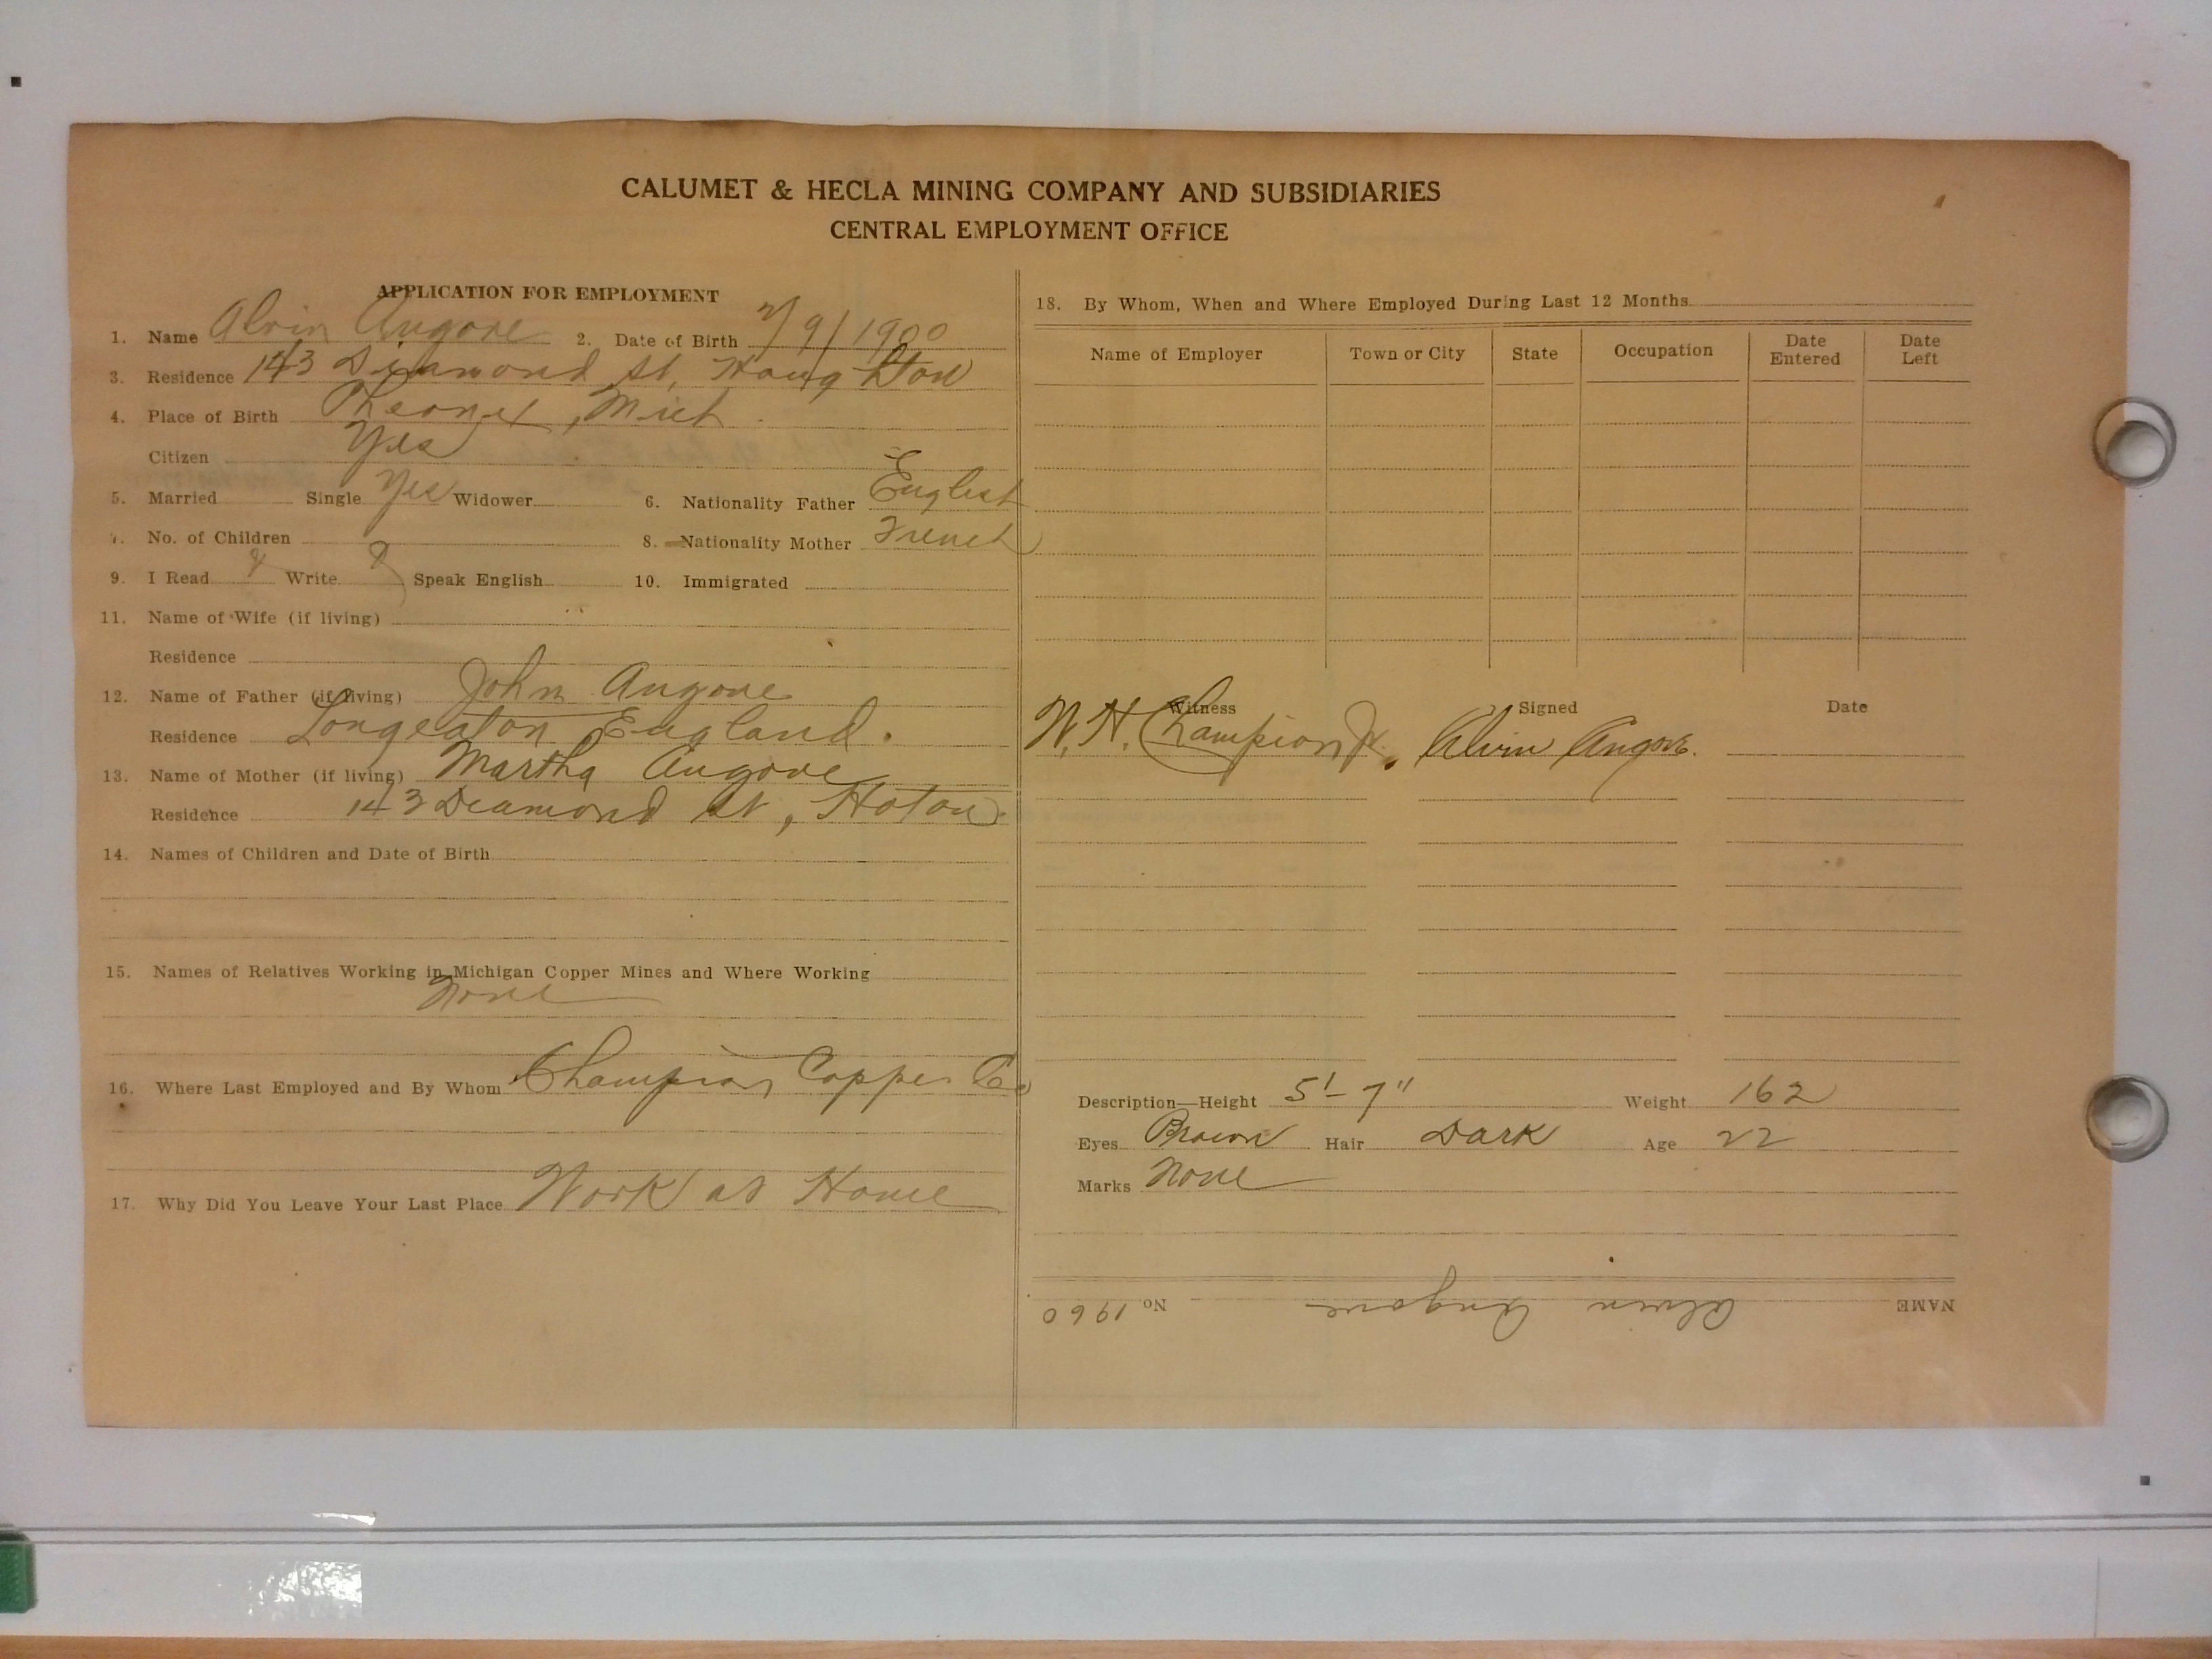 CALUMET & HECLA MINING COMPANY AND SUBSIDIARIES
CENTRAL EMPLOYMENT OFFICE
APPLICATION FOR EMPLOYMENT
1. Name Alvin Angove 2. Date of Birth 7/9/1900
3. Residence 143 Diamond St, Houghton
4. Place of Birth Pheonex, Mich.
Citizen Yes
5. Married Single Yes Widower 6. Nationality Father English
7. No. of Children 8. Nationality Mother French
9. I Read Write Speak English 10. Immigrated
11. Name of Wife (if living)
Residence
12. Name of Father (if living) John Angove
Residence Longeaton England.
13. Name of Mother (if living) Martha Angove
Residence 143 Diamond St, Hoton.
14. Names of Children and Date of Birth
15. Names of Relatives Working in Michigan Copper Mines and Where Working
None
16. Where Last Employed and By Whom Champion Copper Co
17. Why Did You Leave Your Last Place Work at Home
18. By Whom, When and Where Employed During Last 12 Months
Name of Employer Town or City State Occupation Date Entered Date Left
Witness Signed Date
W. H. Champion Jr. Alvin Angove.
Description—Height 5'-7" Weight 162
Eyes Brown Hair Dark Age 22
Marks None
NAME Alvin Angove No. 1960